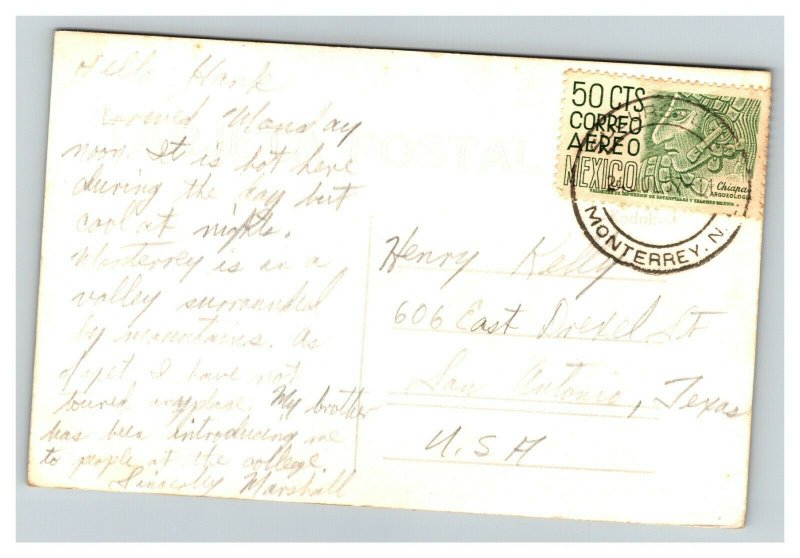 Hello Hank
Arrived Monday
noon. It is hot here
during the day but
cool at nights.
Monterrey is in a
valley surrounded
by mountains. As
of yet I have not
toured anyplace. My brother
has been introducing me
to people at the college.
Sincerely Marshall
POSTAL
50 CTS
CORREO
AEREO
MEXICO
Chiapas
ARQUEOLOGIA
MONTERREY, N.
Kodak
Henry Kelly
606 East Drexel St
San Antonio, Texas
U.S.A